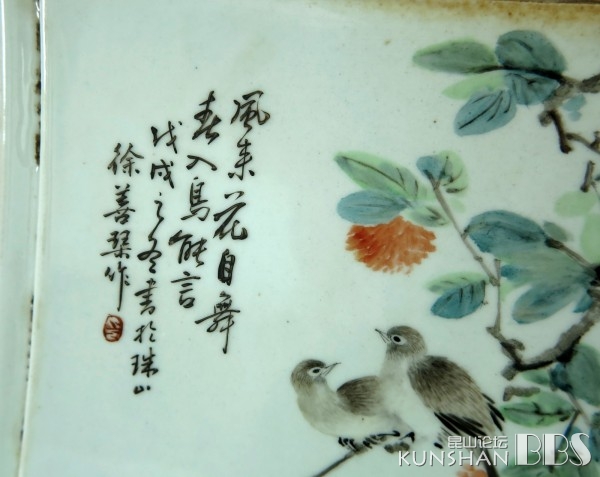 風來花自舞
春入鳥能言
戊戌之冬書於珠山
徐善琹作
昆山论坛
KUNSHAN BBS